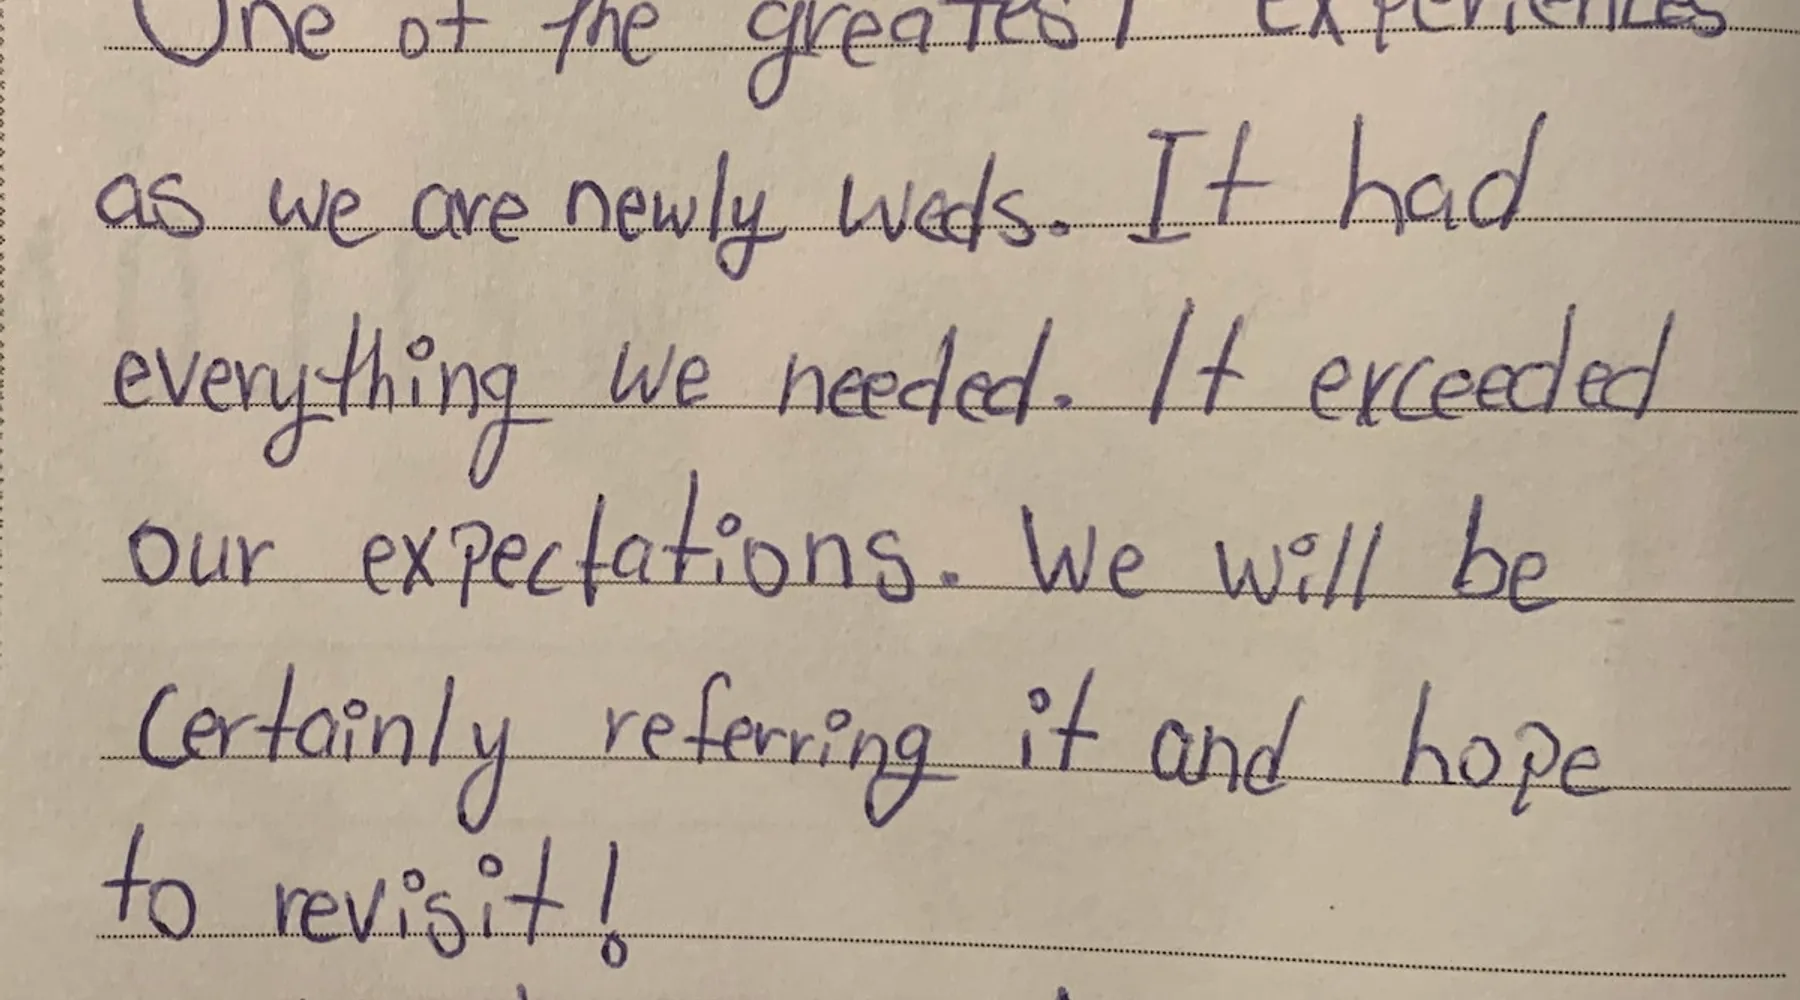 One of the greatest experiences
as we are newly weds. It had
everything we needed. It exceeded
our expectations. We will be
Certainly referring it and hope
to revisit!